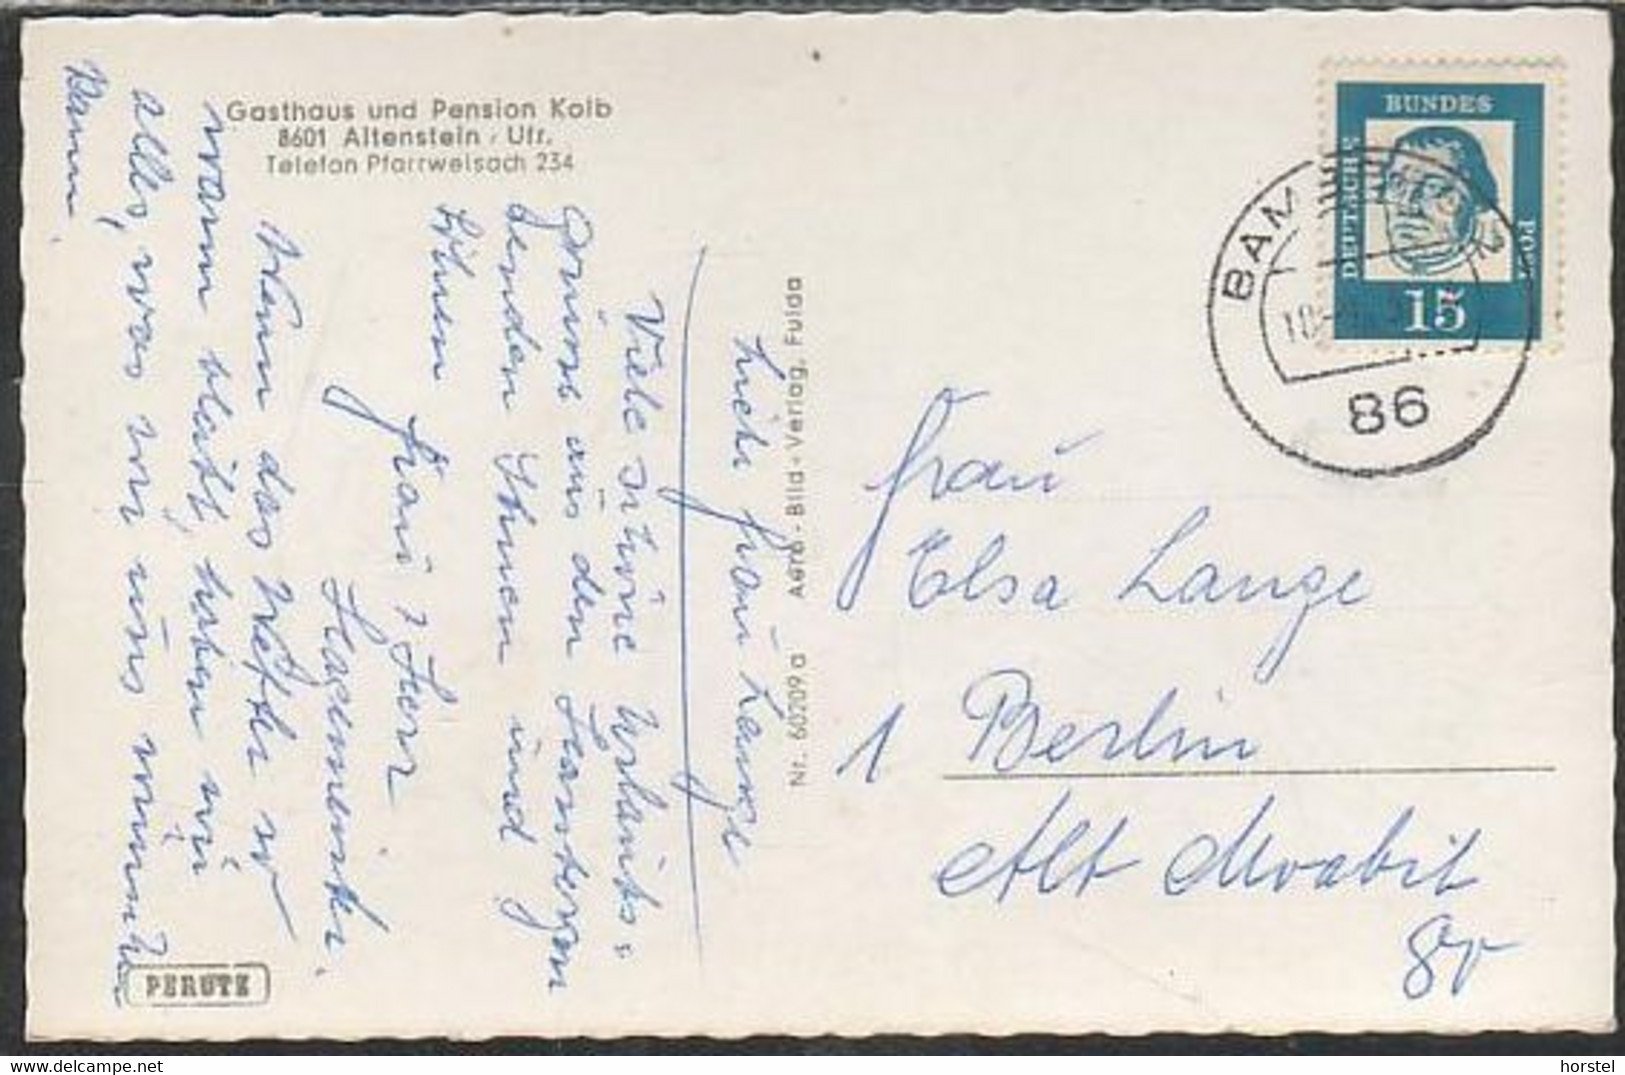 Gasthaus und Pension Kolb
8601 Altenstein, Ufr.
Telefon Pfarrweisach 234
Liebe Frau Lange
Viele schöne Urlaubs-
grüsse aus den
senden Ihnen und
Frau & Herr
Wenn das Wetter so
warm bleibt, haben wir
alles, was wir uns wünschen
PERUTZ
Nr. 60209 a Aero-Bild-Verlag, Fulda
DEUTSCHE
BUNDES
POST
15
BAM
86
Frau
Elsa Lange
1 Berlin
Alt Moabit
horstel
© Delcampe